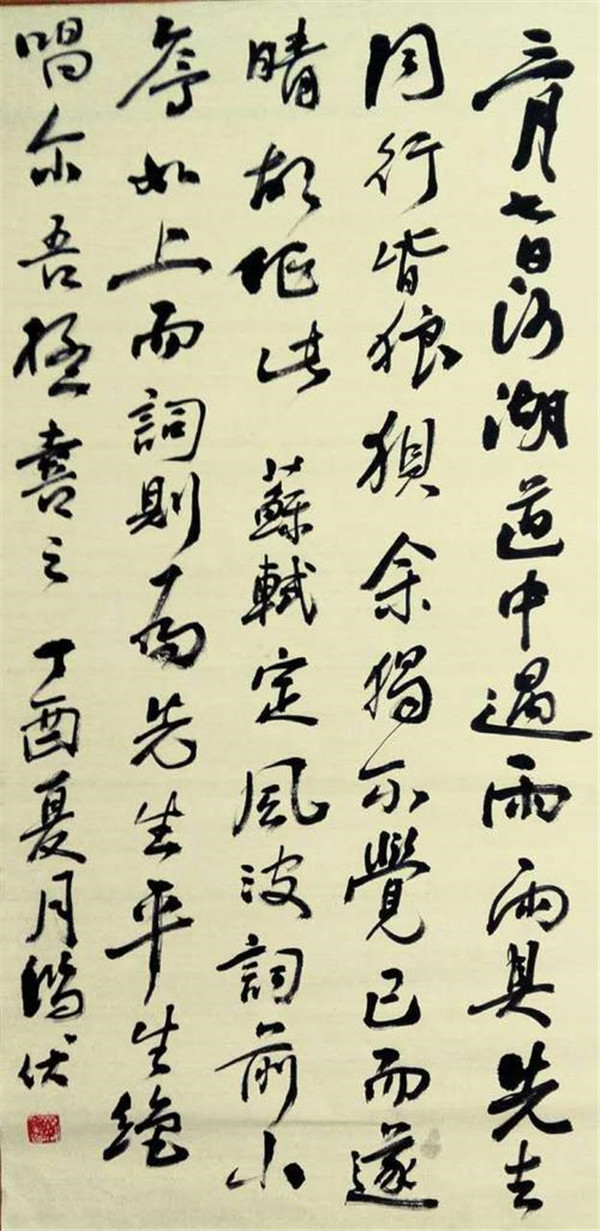 三月七日沙湖道中遇雨雨具先去
同行皆狼狽余獨不覺已而遂
晴故作此 蘇軾定風波詞前小
序如上而詞則為先生平生絶
唱亦吾極喜之 丁酉夏月伏